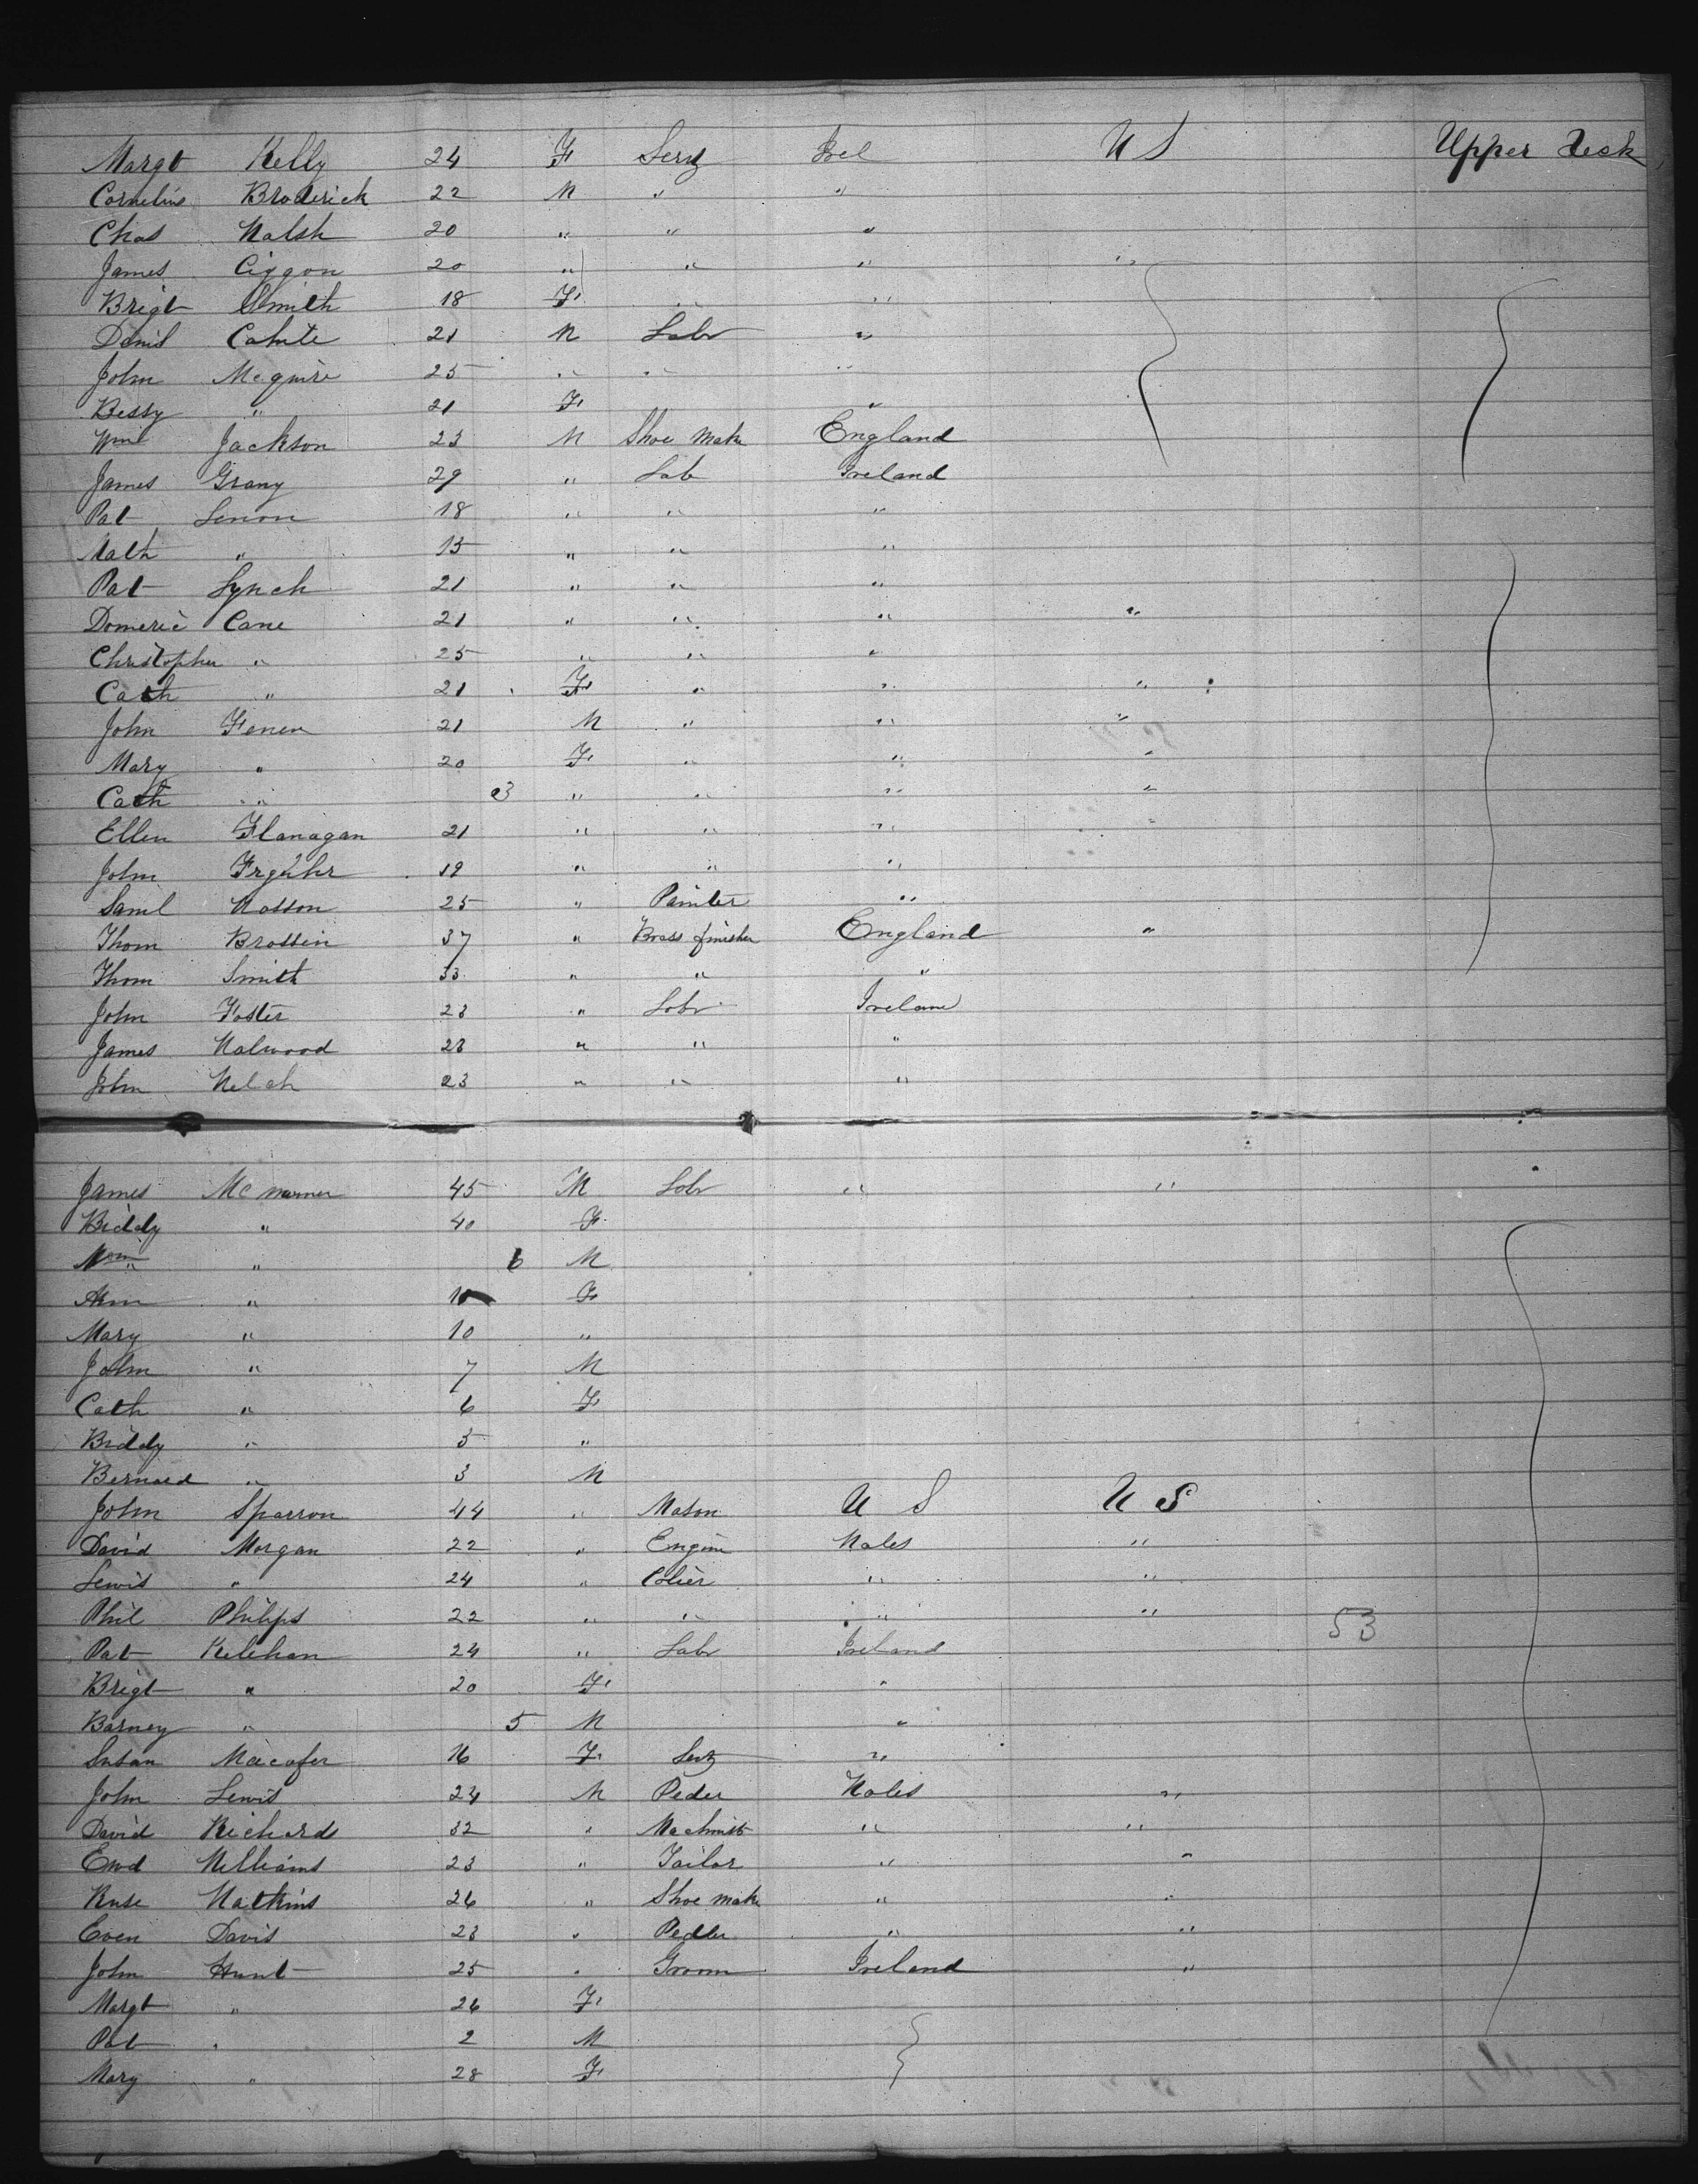 Margt Kelly 24 F Servt Irel U S Upper Deck
Cornelius Broderick 22 M " "
Chas Walsh 20 " " "
James Ciggon 20 " " " "
Brigt Smith 18 F " "
Danil Cahute 21 M Labr "
John McGuire 25 " " "
Bessy " 21 F "
Wm Jackson 23 M Shoe Make England
James Grany 29 " Lab Ireland
Pat Lenon 18 " " "
Math " 15 " " "
Pat Lynch 21 " " "
Domeric Cane 21 " " " "
Christopher " 25 " " "
Cath " 21 F " " "
John Fenen 21 M " " "
Mary " 20 F " " "
Cath " 3 " " " "
Ellen Flanagan 21 " " " "
John 19 " " "
Saml Watson 25 " Painter "
Thom Brossin 37 " Brass finisher England "
Thom Smith 33 " " "
John Foster 23 " Labr Irelan
James Walwood 23 " " "
John Welch 23 " " "
James Mc 45 M Labr " "
Biddy " 40 F
" 6 M
Ann " F
Mary " 10 "
John " 7 M
Cath " 6 F
Biddy " 5 "
Bernard " 3 M
John Sparrow 44 " Mason U S U S
David Morgan 22 " Engine Wales "
Lewis " 24 " Colier " "
Phil Philips 22 " " " " 53
Pat Kelehan 24 " Labr Ireland
Brigt " 20 F "
Barney " 5 M "
Susan Macafer 16 F Servt "
John Lewis 24 M Peder Wales "
David Richards 32 " Machinist " "
Ewd Williams 23 " Tailor " "
Watkins 26 " Shoe make " "
Even Davis 23 " Pedler " "
John Hunt 25 " Groom Ireland "
Margt " 26 F
Pat " 2 M
Mary " 28 F